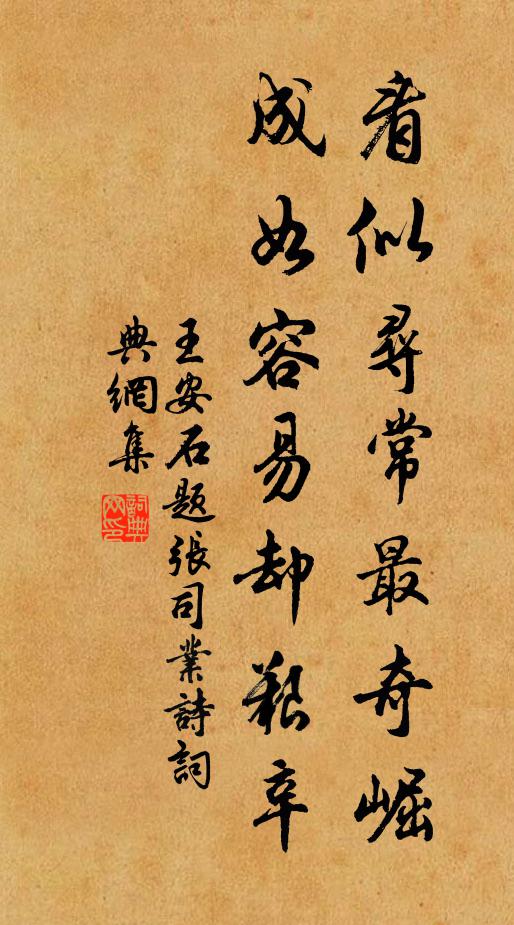 看似尋常最奇崛
成如容易却艱辛
王安石題張司業詩詞
典網集
詞典
網印